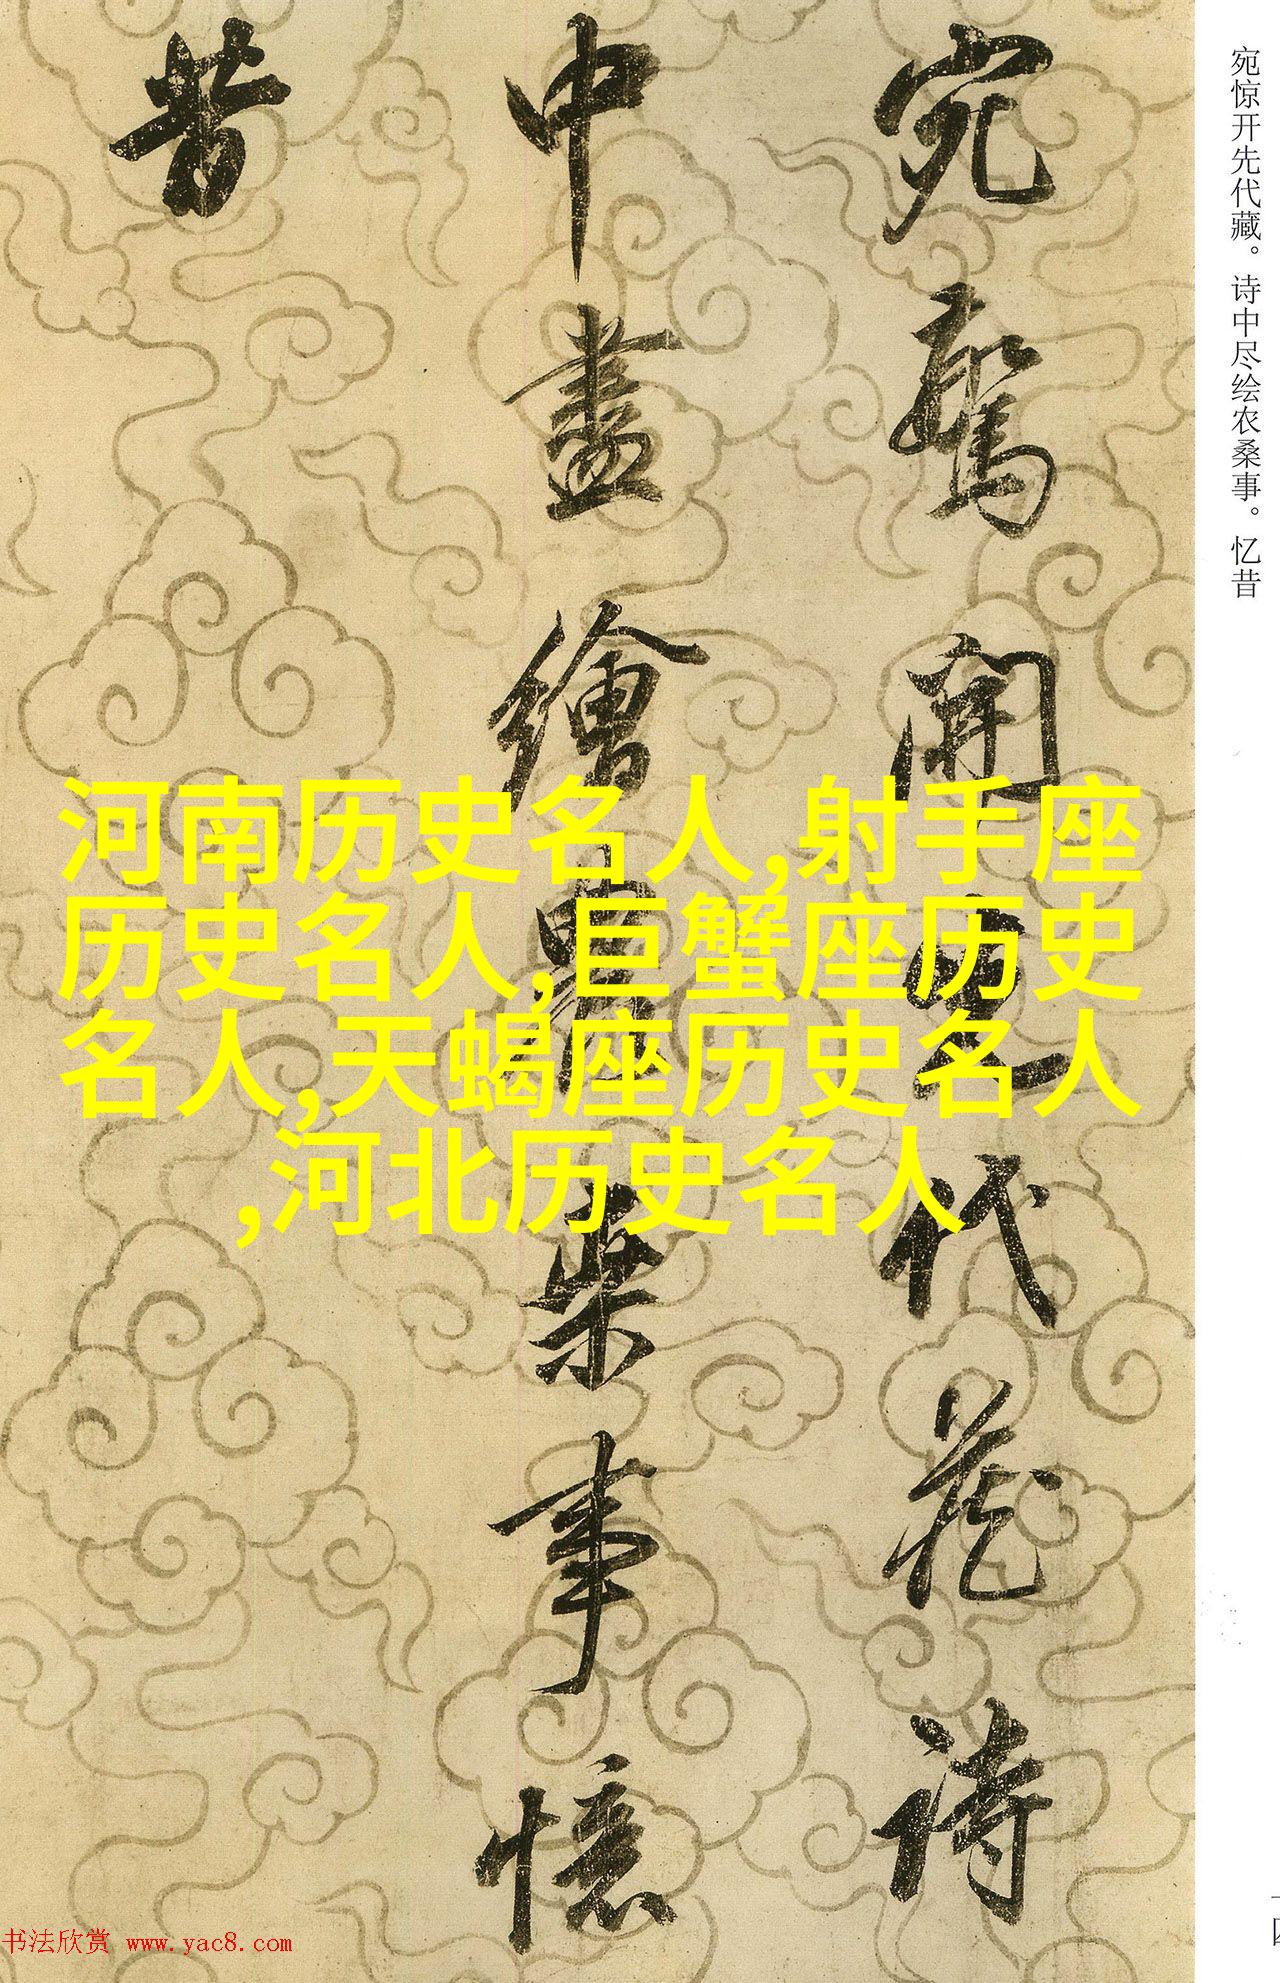 宛驚開先代藏詩
中盡繪農桑事憶
昔
宛惊开先代藏。诗中尽绘农桑事。忆昔
河南历史名人,射手座
历史名人,巨蟹座历史
名人,天蝎座历史名人
,河北历史名人
书法欣赏 www.yac8.com